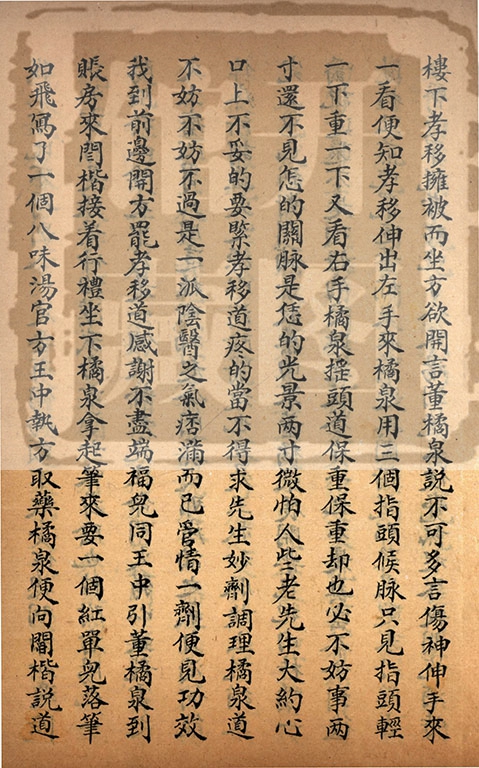 樓下孝移擁被而坐方欲開言董橘泉説不可多言傷神伸手來
一看便知孝移伸出左手來橘泉用三個指頭候脉只見指頭輕
一下重一下又看右手橘泉搖頭道保重保重却也必不妨事两
寸還不見怎的關脉是恁的光景两寸微怕人些老先生大約心
口上不妥的要緊孝移道疼的當不得求先生妙劑調理橘泉道
不妨不妨不過是一派陰醫之氣痞滿而已管情一劑便見功效
我到前邊開方罷孝移道感謝不盡端福兒同王中引董橘泉到
賬房來閻楷接着行禮坐下橘泉拿起筆來要一個紅單兒落筆
如飛寫了一個八味湯官方王中執方取藥橘泉便向閻楷説道